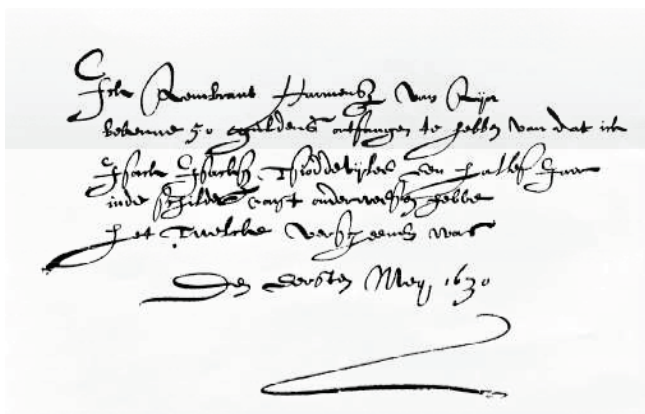 Jck Rembrant Harmensz van Rijn
bekenne 50 guldens ontfangen te hebbn van dat ick
Jsack Jsacksz. Tsioddevijler een hallef Jaer
inde schilder const onderwesen hebbe
het Twelcke verscheenen was
Den eersten Meij 1630